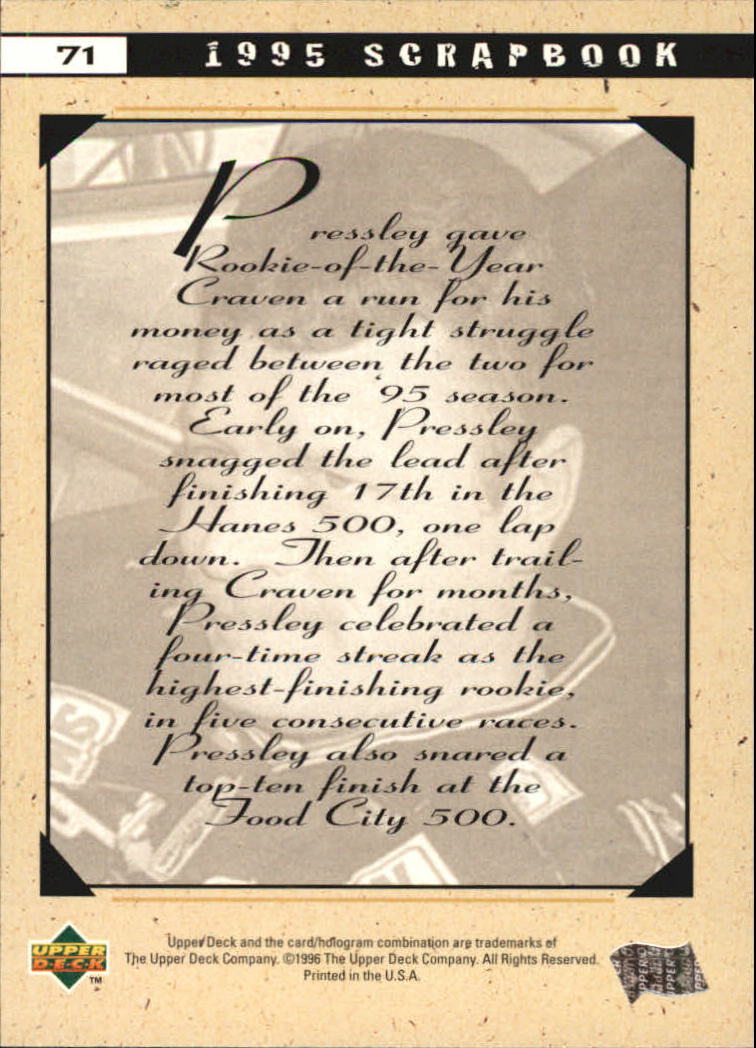 71
1995 SCRAPBOOK
Pressley gave
Rookie-of-the-Year
Craven a run for his
money as a tight struggle
raged between the two for
most of the '95 season.
Early on, Pressley
snagged the lead after
finishing 17th in the
Hanes 500, one lap
down. Then after trail-
ing Craven for months,
Pressley celebrated a
four-time streak as the
highest-finishing rookie,
in five consecutive races.
Pressley also snared a
top-ten finish at the
Food City 500.
UPPER
DECK
TM
Upper Deck and the card/hologram combination are trademarks of
The Upper Deck Company. ©1996 The Upper Deck Company. All Rights Reserved.
Printed in the U.S.A.